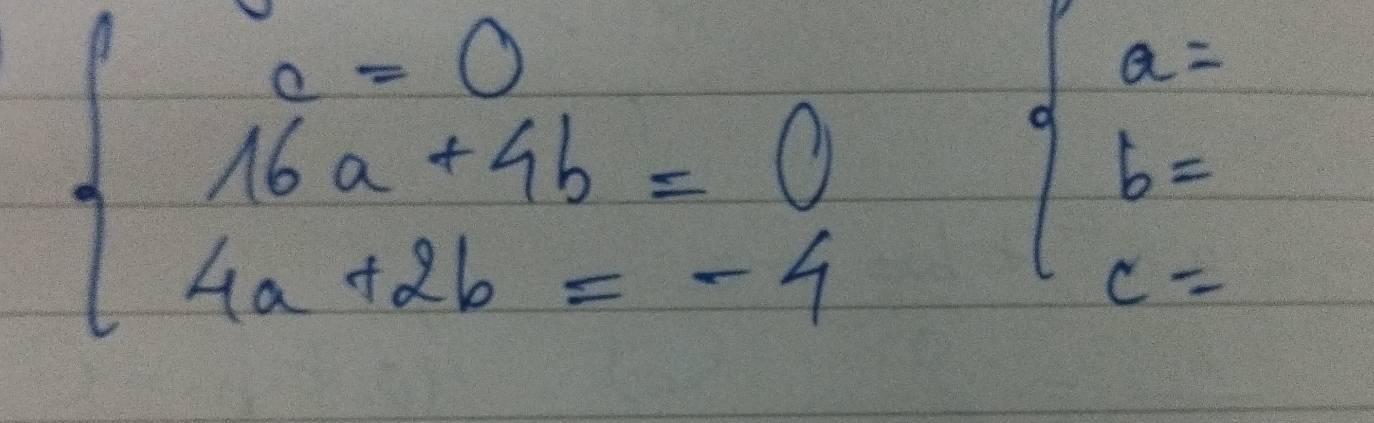 c = 0
16a + 4b = 0
4a + 2b = - 4
a =
b =
c =